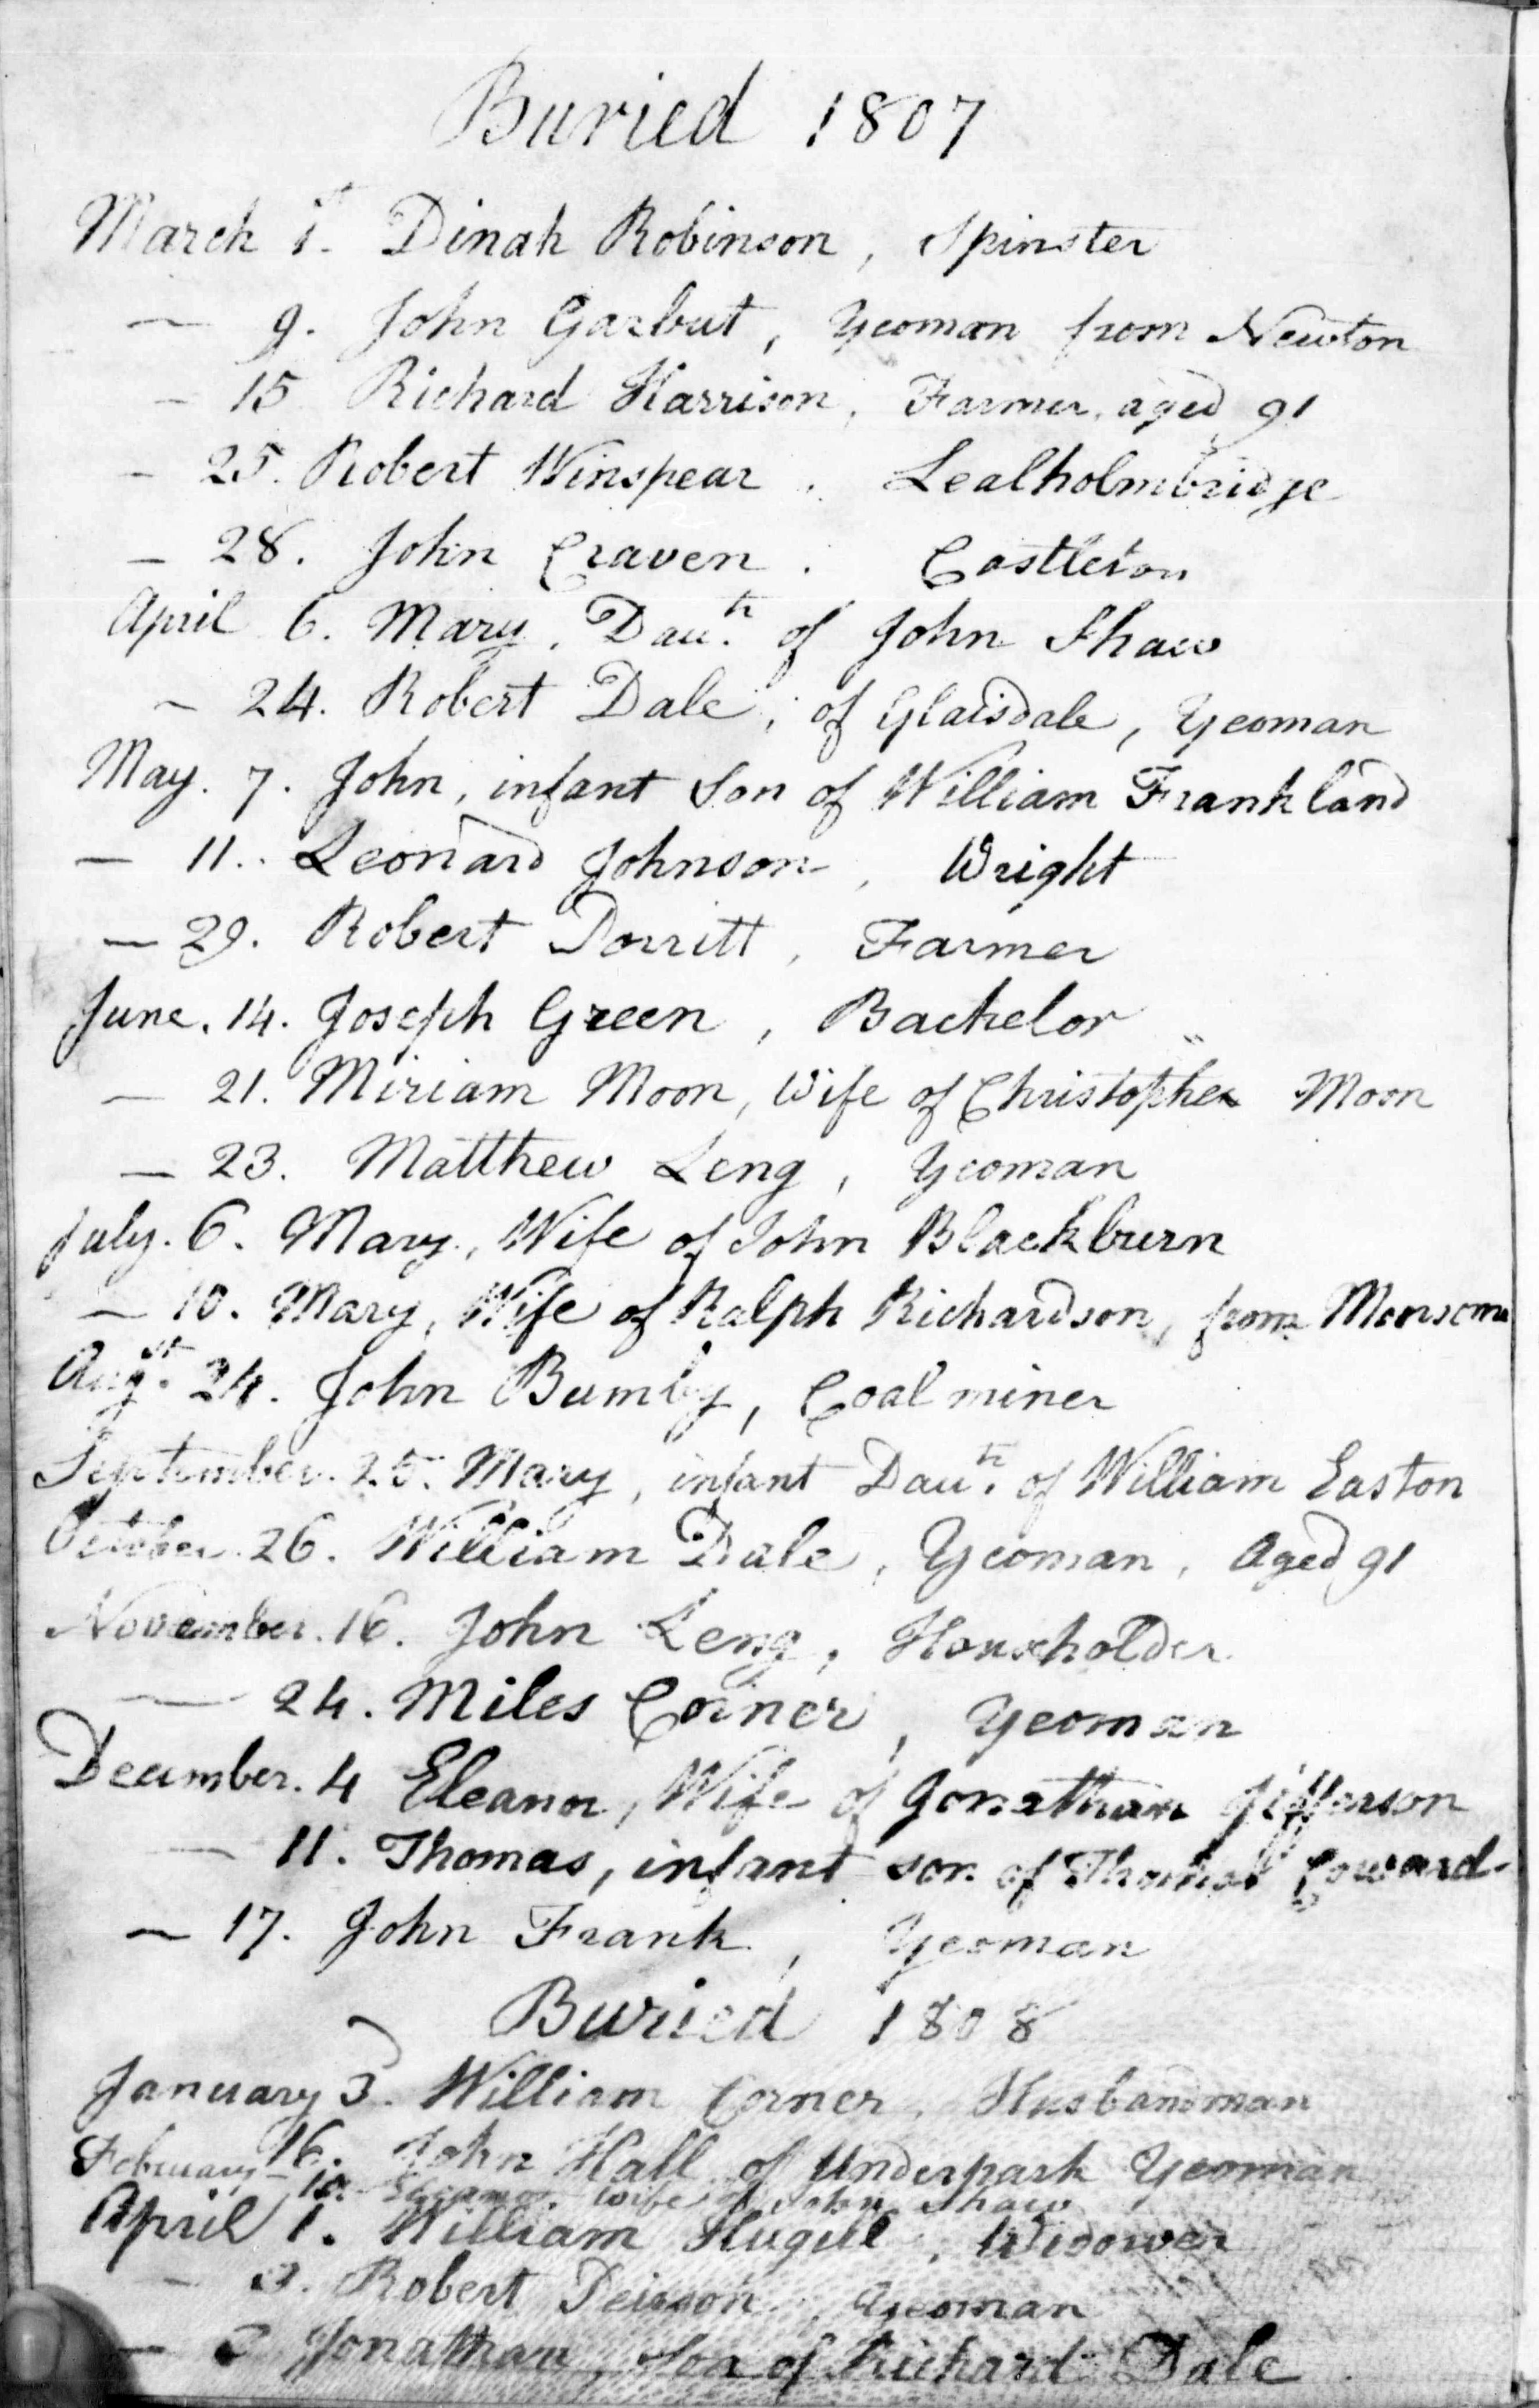 Buried 1807
March 1st Dinah Robinson, Spinster
— 9. John Garbut, Yeoman from Newton
— 15 Richard Harrison, Farmer, aged 91
— 25. Robert Winspear. Lealholmbridge
— 28. John Craven. Castleton
April 6. Mary, Dau.tr of John Shaw
— 24. Robert Dale, of Glaisdale, Yeoman
May. 7. John, infant Son of William Frankland
— 11.. Leonard Johnson, Wright
— 29. Robert Dorritt, Farmer
June. 14. Joseph Green, Bachelor
— 21. Miriam Moon, Wife of Christopher Moon
— 23. Matthew Leng, Yeoman
July. 6. Mary, Wife of John Blackburn
— 10. Mary, Wife of Ralph Richardson, from
Augst. 24. John Bumby, Coal miner
September. 25. Mary, infant Dau.tr of William Easton
October. 26. William Dale, Yeoman, Aged 91
November. 16. John Leng, Householder
— 24. Miles Corner, Yeoman
December. 4 Eleanor, Wife of Jonathan Jefferson
— 11. Thomas, infant son of Thomas Coward.
— 17. John Frank, Yeoman
Buried 1808
January 3. William Corner, Husbandman
16. John Hall of Underpark Yeoman
February — 10. wife of John Shaw
April 1. William Hugill, Widower
— Robert Yeoman
— Jonathan, Son of Richard Dale